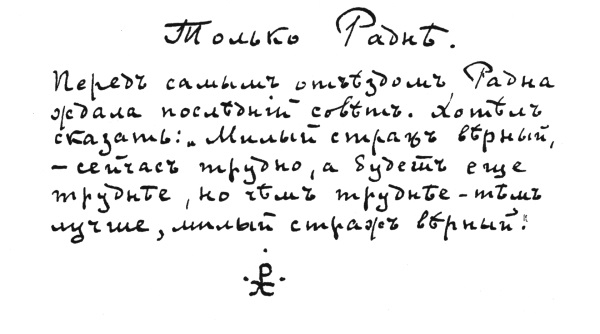 Только Раднѣ.
Передъ самымъ отъѣздомъ Радна
ждала послѣдній совѣтъ. Хотѣлъ
сказать: „Милый стражъ вѣрный,
— сейчасъ трудно, а будетъ еще
труднѣе, но чѣмъ труднѣе – тѣмъ
лучше, милый стражъ вѣрный“.